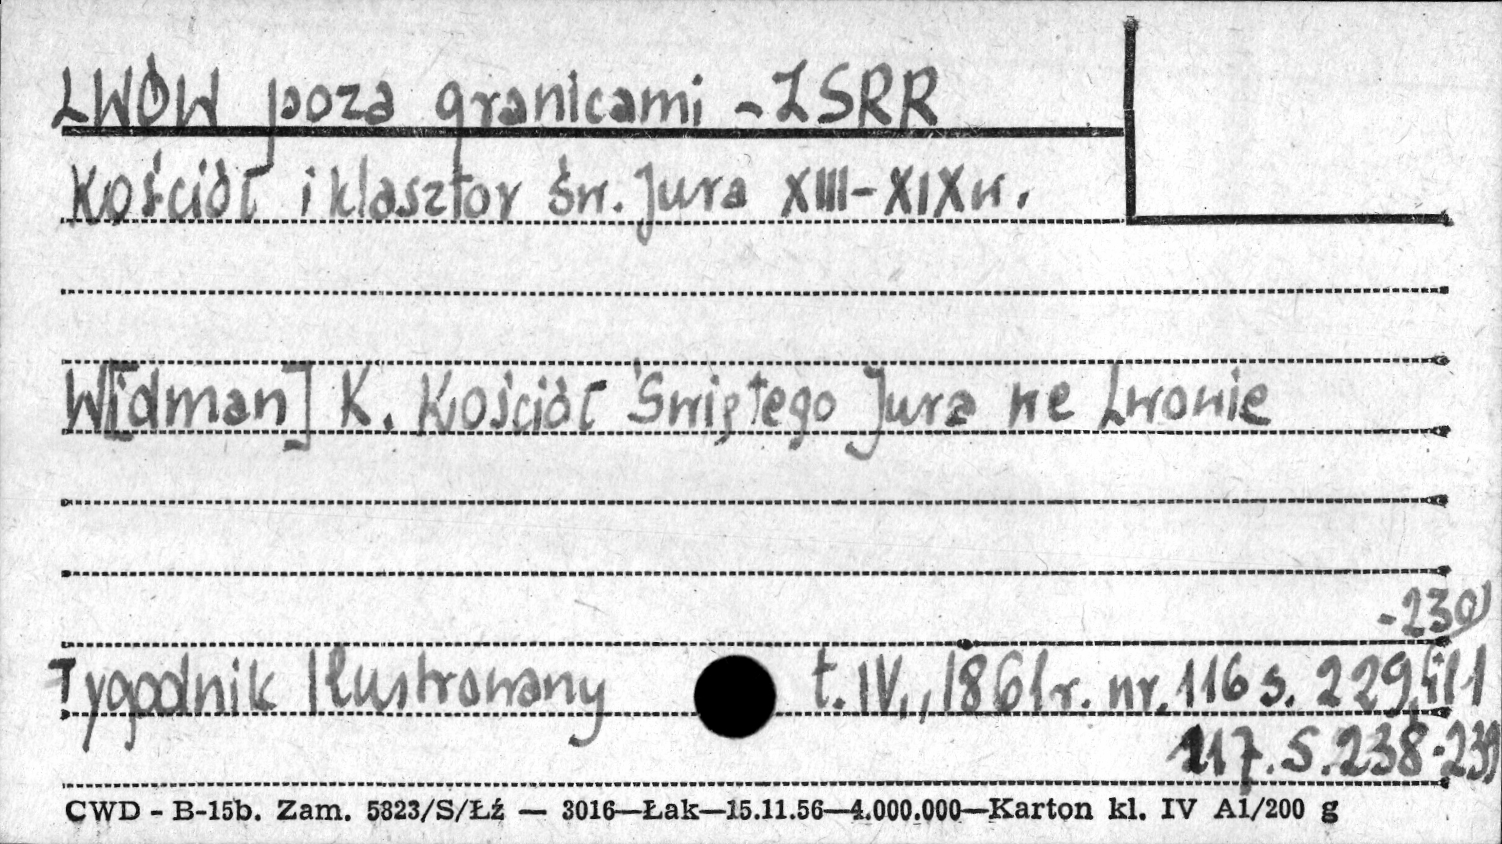 LWÓW poza granicami - ZSRR
Kościół i klasztor św. Jura XIII-XIX w.
W[idman] K. Kościół Świętego Jura we Lwowie
-230
Tygodnik Ilustrowany t. IV., 1861 r. nr. 116 s. 229, il 1
117. s. 238-239
CWD - B-15b. Zam. 5823/S/Łź — 3016—Łak—15.11.56—4.000.000—Karton kl. IV A1/200 g